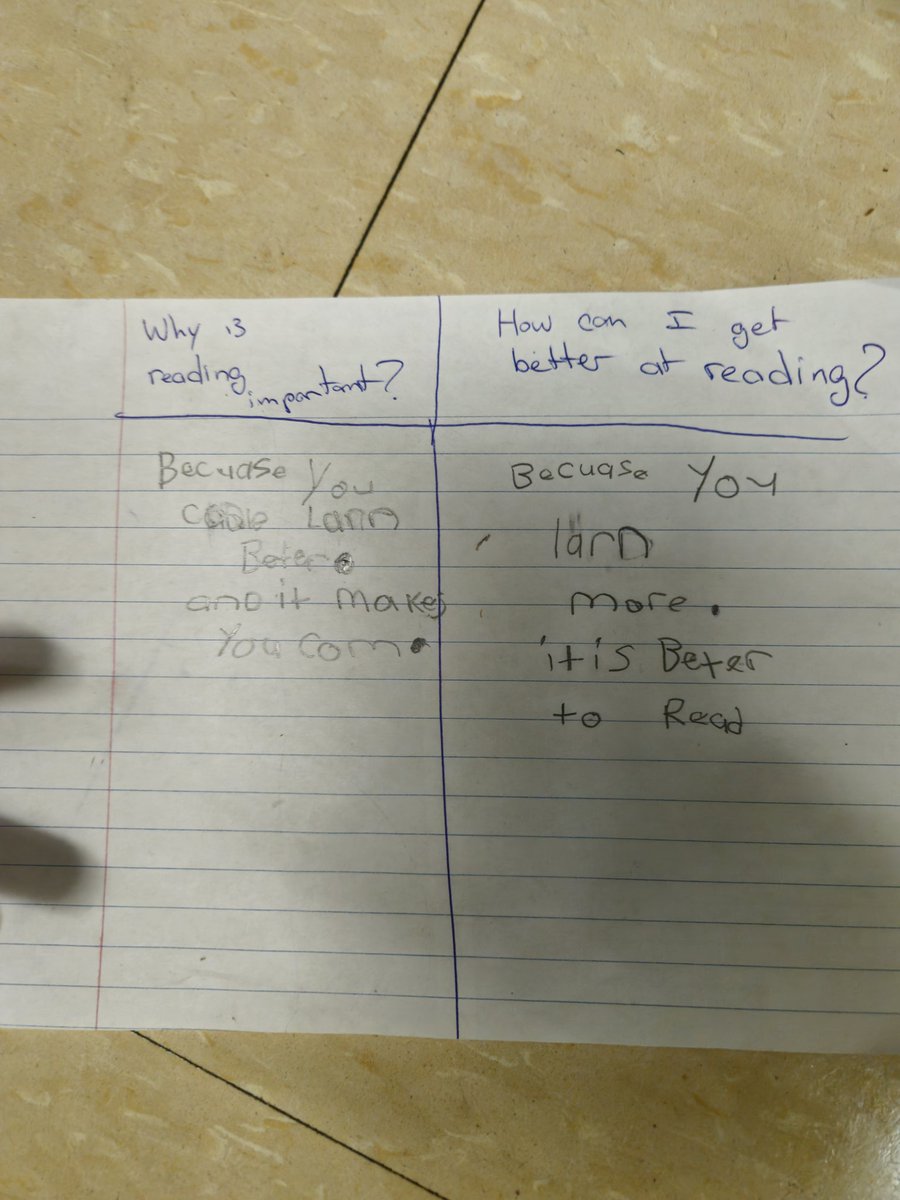 Why is
reading
important?
Becuase You
Larn
Beter.
and it makes
You com.
How can I get
better at reading?
Becuase You
larn
more.
it is Beter
to Read